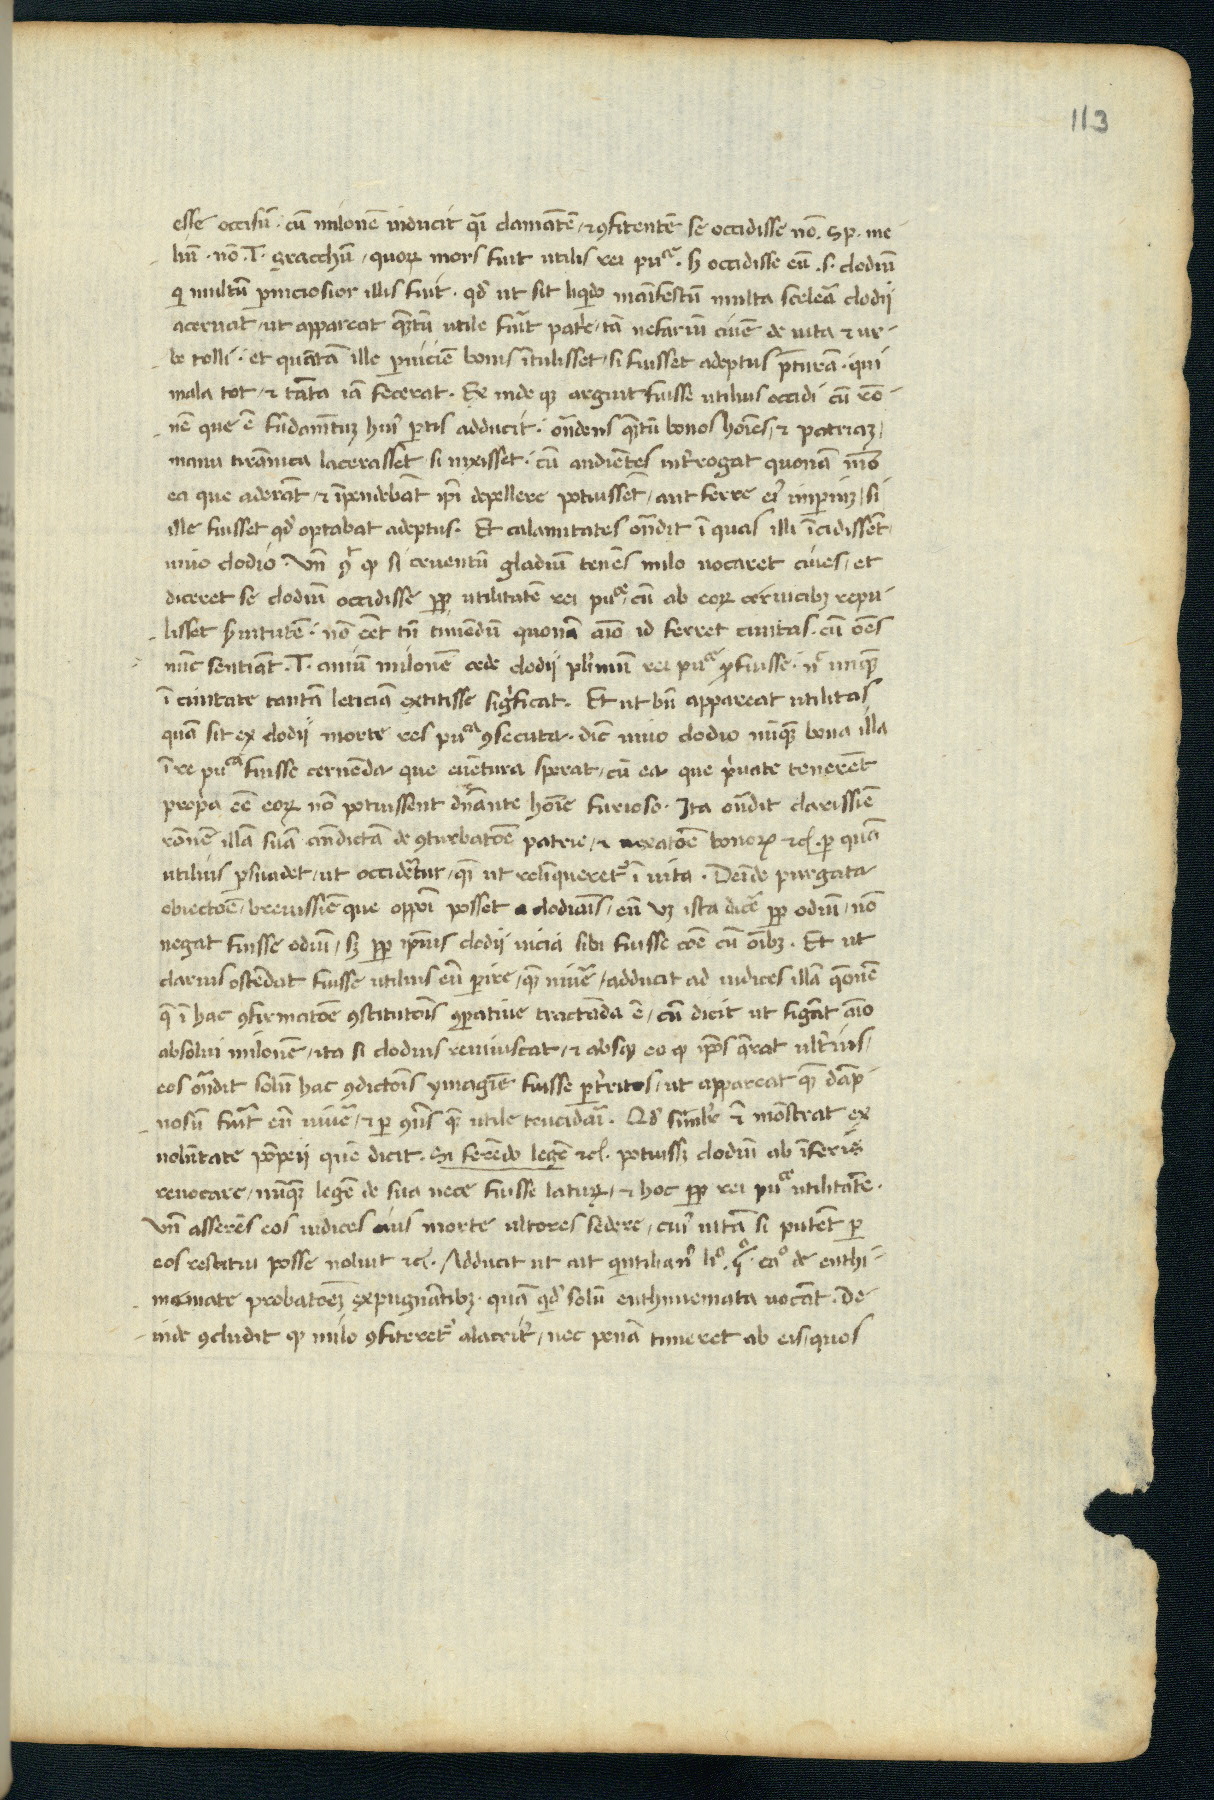 113
esse occisū. cū milonē inducit q̄i clamātē / ⁊ ꝯfitentē se occidisse nō. Sp. me-
liū. nō. T. gracchū / quoꝝ mors fuit utilis rei puᶜᵉ. sꝫ occidisse eū .s. clodiū
qi multū ꝑniciosior illis fuit. qđ ut sit liq̇do maīfestū multa scelera clodij
aceruat / ut appareat quātū utile fuit pat̄e / tā nefariū ciuē de uita ⁊ ur-
be tolli. et quātā ille ꝑniciē bonis ītulisset / si fuisset adeptus p̄turā. qui
mala tot / ⁊ tāta iā fecerat. Ex inde qꝫ arguit fuisse utilius occidi cū rō-
nē que ē fūdamētū huiꝰ ꝑtis adducit. oñdens quātū bonos hoīes / ⁊ patriaꝫ /
manu tirānica lacerasset si uixisset. cū audientes int̄rogat quonā mō
ea que aderāt / ⁊ īpendebāt ip̄i depellere potuissēt / aut ferre eiꝰ imperiuꝫ / si
ille fuisset qđ optabat adeptus. Et calamitates oñdit ī quas illi īcidissēt
uiuo clodio. Vñ qꝫ si cruentū gladiū tenēs milo uocaret ciues / et
diceret se clodiū occidisse ꝓp̄ utilitatē rei puᶜᵉ / cū ab eoꝝ ceruicibꝫ repu-
lisset ẜuitutē. nō eēt tn̄ timendū quonā aīo id ferret ciuitas. cū oēs
nūc sentiāt. T. anniū milonē cede clodij plīmū rei puᶜᵉ ꝓfuisse. nᶜ unqꝫ
ī ciuitate tantā leticiā extitisse sig̅ficat. Et ut bn̄ appareat utilitas
quā sit ex clodij morte res puᶜᵃ ꝯsecuta. dic̄ uiuo clodio nūqꝫ bona illa
ī re puᶜᵃ fuisse cernenda que euētura sperat / cū ea que p̄uate tenerēt
propa eē eoꝝ nō potuissent dn̄ante hoīe furioso. Ita oñdit clarissīe
rōnē illā suā ꝯtradictā de ꝯturbatōe patrie / ⁊ uexatōe bonoꝝ ⁊cl. ꝑ quā
utilius ꝑsuadet / ut occideretur / qꝫ ut relinqueretꝰ ī uita. Deīde purgata
obiectoē / breuissīe que opp̄oi posset a clodiaīs / eū uꝫ ista dic̄e ꝓp̄ odiū / nō
negat fuisse odiū / sꝫ ꝓp̄ ip̄ius clodij uicia sibi fuisse coē cū oībꝫ. Et ut
clarius ostēdat fuisse utilius eū ꝑire / qꝫ uiuē / adducit ad iudices illā qōnē
q̄ ī hac ꝯfirmatōe ꝯstitutoīs ꝯꝑatiue tractāda ē / cū dicit ut fīgāt aīo
absolui milonē / ita si clodius reuiuiscat / ⁊ absqꝫ eo qꝫ ip̄os q̄rat ult̄ius /
eos oñdit solū hac ꝯdictoīs ymagīe fuisse ꝑt̄ritos / ut appareat qꝫ dāp-
nosū fuit eū uiuē / ⁊ ꝑ ꝯn̄s qꝫ utile trucidari. Qđ sīmlr ē mōstrat ex
uolūtate pōpeij quē dicit. In ferēdo legē ⁊cl. potuissꝫ clodiū ab īferis
reuocare / nūqꝫ legē de sua nece fuisse latuꝝ / ⁊ hoc ꝓp̄ rei puᶜᵉ utilitatē.
Vñ asserēs eos iudices eius morte ultores sedere / cuiꝰ uitā si putēt ꝑ
eos restitui posse noluit ⁊cl. Adducit ut ait quintilianꝰ liº. ca º de enthi-
memate probatoēꝫ expugnātibꝫ. quā qđ solū enthimemata uocāt. De-
inde ꝯcludit qꝫ milo ꝯfiteretꝰ alacrit̄ / nec penā timeret ab eis / quos